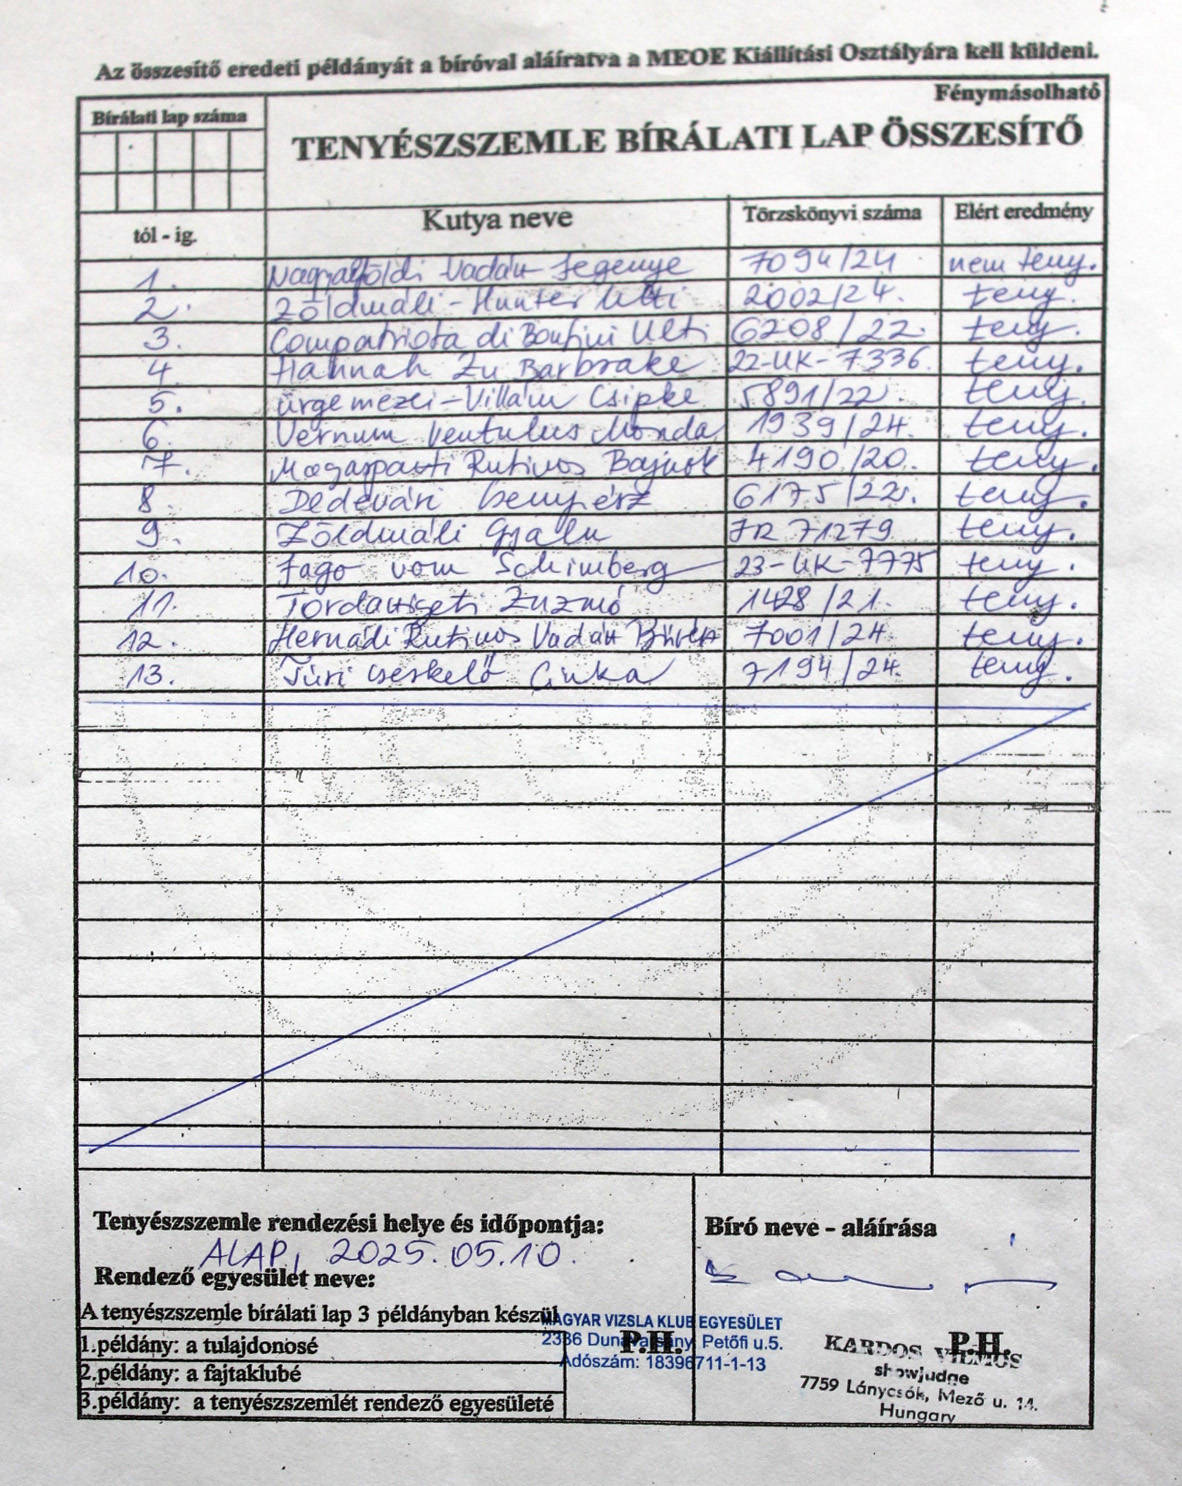 Az összesítő eredeti példányát a bíróval aláíratva a MEOE Kiállítási Osztályára kell küldeni.
Fénymásolható
Bírálati lap száma
TENYÉSZSZEMLE BÍRÁLATI LAP ÖSSZESÍTŐ
tól - ig. Kutya neve Törzskönyvi száma Elért eredmény
1. Nagyalföldi Vadász Legenye 7094/24 nem teny.
2. Zöldmáli-Hunter Ulti 2002/24. teny.
3. Compatriota di Bonfini Ulti 6208/22. teny.
4. Hannah Zu Barbrake 22-UK-7336. teny.
5. Ürgemezei-Villám Csipke 5891/22 teny.
6. Vernum Ventulus Monda 1939/24. teny.
7. Magasparti Rutinos Bajnok 4190/20. teny.
8. Dédevári 6175/22. teny.
9. Zöldmáli JR 71279 teny.
10. Fago vom Schimberg 23-UK-7775 teny.
11. Tordaszigeti Zuzmó 1428/21. teny.
12. Hernádi Rutinos Vadász 7001/24. teny.
13. Túri Cserkelő Cinka 7194/24. teny.
Tenyészszemle rendezési helye és időpontja:
ALAP, 2025.05.10.
Rendező egyesület neve:
A tenyészszemle bírálati lap 3 példányban készül
1.példány: a tulajdonosé
2.példány: a fajtaklubé
3.példány: a tenyészszemlét rendező egyesületé
P.H.
MAGYAR VIZSLA KLUB EGYESÜLET
2336 Dunavarsány, Petőfi u.5.
Adószám: 18396711-1-13
Bíró neve - aláírása
P.H.
KARDOS VILMOS
showjudge
7759 Lánycsók, Mező u. 14.
Hungary